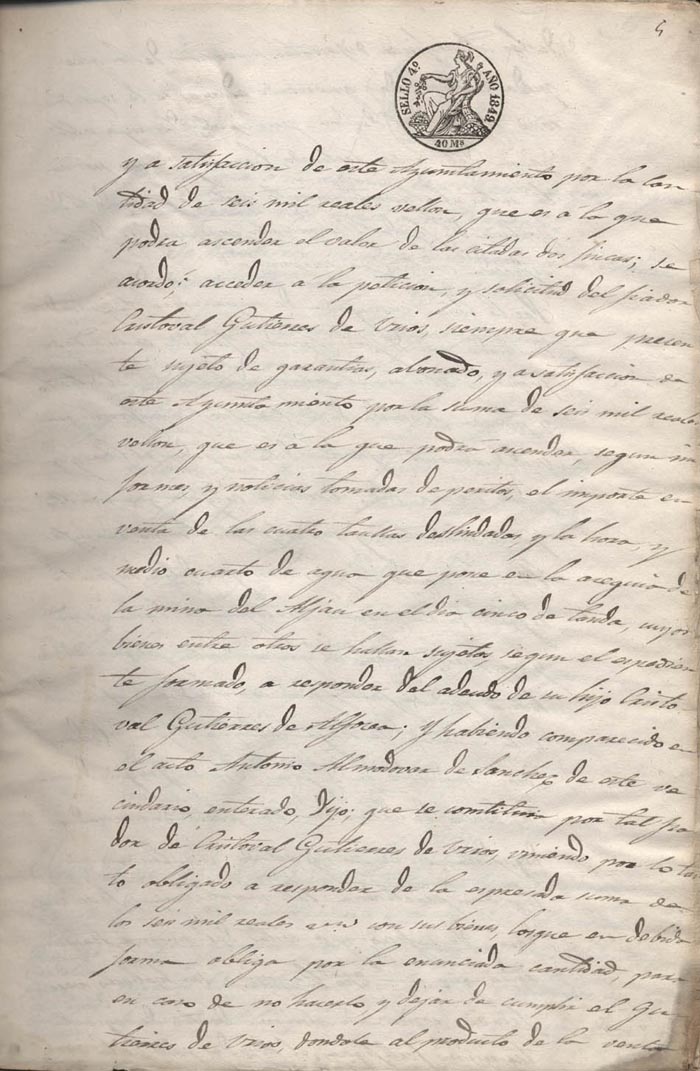 5
SELLO 4º AÑO 1849
40 Ms
y a satisfaccion de este Ayuntamiento por la can
tidad de seis mil reales vellon, que es á la que
podrá ascender el valor de las citadas dos fincas; se
acordó; acceder a la peticion, y solicitud del fiador
Cristoval Gutierres de Vrios, siempre que presen
te sujeto de garantias, abonado, y a satisfaccion de
este Ayuntamiento por la suma de seis mil reales
vellon, que es á la que podrá ascender, segun in
formes, y noticias tomadas de peritos, el importe en
venta de las cuatro taullas deslindadas, y la hora, y
medio cuarto de agua que pose en la acequia de
la mina del Aljau en el dia cinco de tanda, cuyos
bienes entre otros se hallan sujetos, segun el espedien
te formado, a responder del adeudo de su hijo Cristo
val Gutierres de; Y habiendo comparecido en
el acto Antonio Almodovar de Sanchez de este ve
cindario, enterado, Dijo; que se constituia por tal fia
dor de Cristoval Gutierres de Vrios, viniendo por lo tan
to obligado a responder de la espresada suma de
los seis mil reales con sus bienes, los que en debida
forma obliga por la enunciada cantidad, para
en caso de no hacerlo y dejar de cumplir el Gu
tierres de Vrios, dandole al producto de la venta